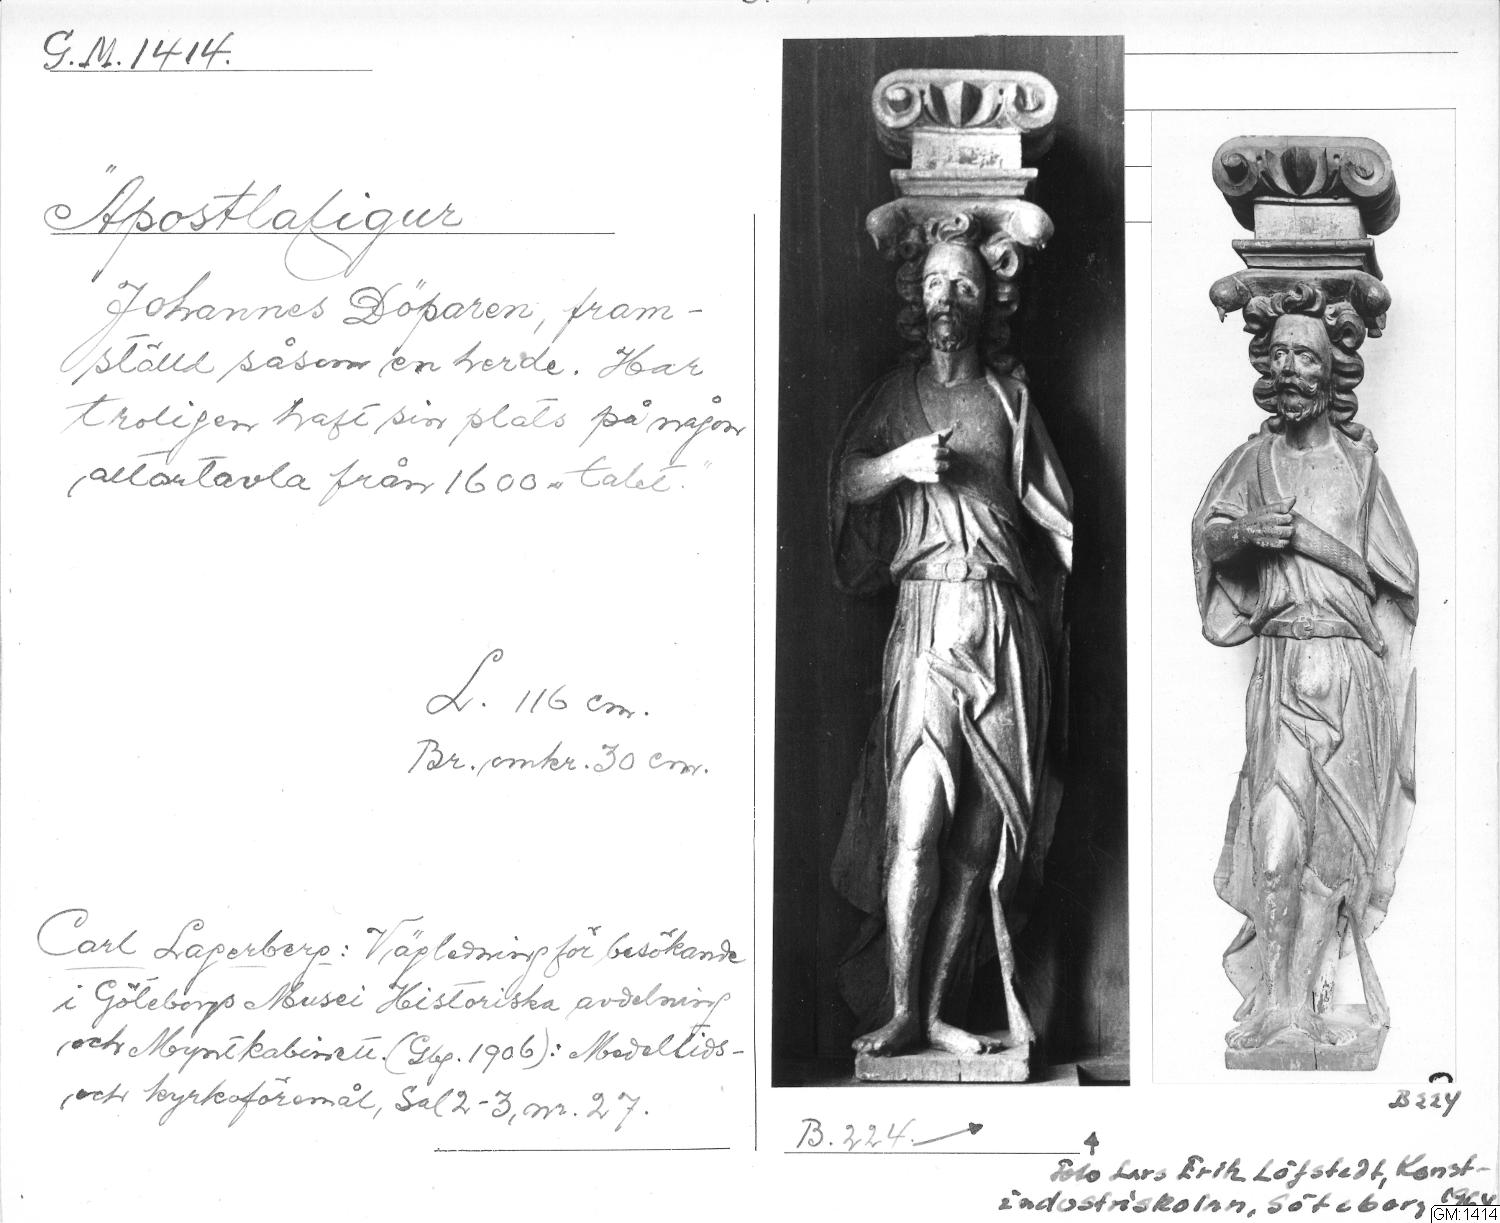 G.M.1414.
"Apostlafigur
Johannes Döparen, fram-
ställd såsom en herde. Har
troligen haft sin plats på någon
altartavla från 1600-talet."
L. 116 cm.
Br. omkr. 30 cm.
Carl Lagerberg: Vägledning för besökande
i Göteborgs Musei Historiska avdelning
och Myntkabinett. (Gbg. 1906): Medeltids-
och kyrkoföremål, Sal 2-3, nr. 27.
B. 224.
B224
Foto Lars Erik Löfstedt, Konst-
industriskolan, Göteborg 1964
GM:1414